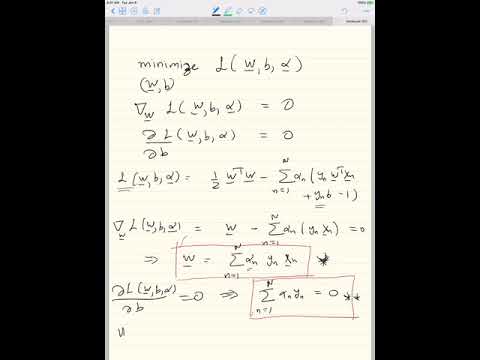 minimize L(w, b, α)
(w, b)
∇w L(w, b, α) = 0
∂L(w, b, α)/∂b = 0
L(w, b, α) = 1/2 wᵀw − Σₙ₌₁ᴺ αₙ(yₙ wᵀxₙ + yₙb − 1)
∇w L(w, b, α) = w − Σₙ₌₁ᴺ αₙ(yₙ xₙ) = 0
⇒ w = Σₙ₌₁ᴺ αₙ yₙ xₙ *
∂L(w, b, α)/∂b = 0 ⇒ Σₙ₌₁ᴺ αₙyₙ = 0 **